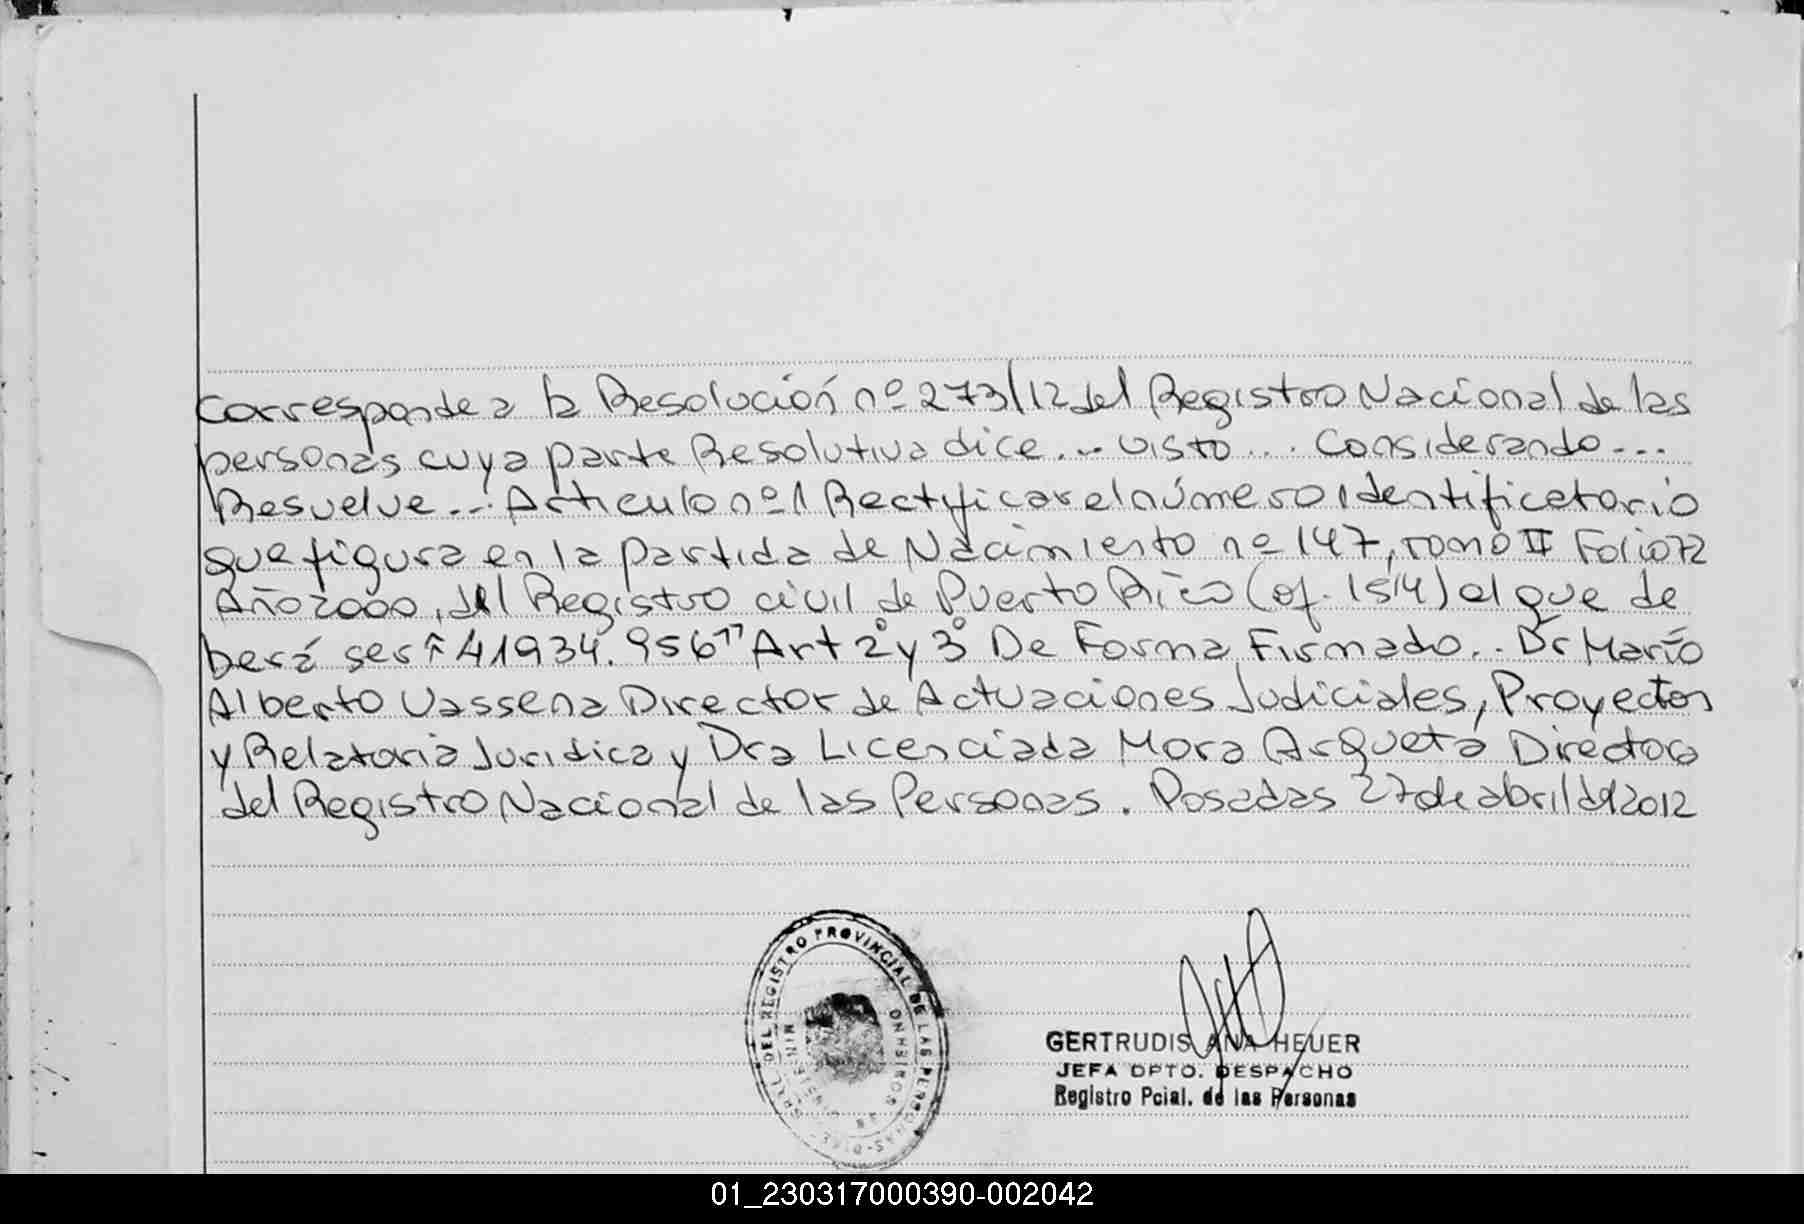 Corresponde a la Resolución nº 273/12 del Registro Nacional de las
personas cuya parte Resolutiva dice... visto... Considerando...
Resuelve... Articulo nº 1 Rectificar el número identificatorio
que figura en la partida de Nacimiento nº 147, tomo II Folio 72
Año 2000, del Registro civil de Puerto Rico (of. 1514) el que de
berá ser "41934.956" Art 2º y 3º De Forma Firmado.. Dr Mario
Alberto Vassena Director de Actuaciones Judiciales, Proyectos
y Relatoria Juridica y Dra Licenciada Mora Arqueta Directora
del Registro Nacional de las Personas. Posadas 27 de abril del 2012
GRAL. DEL REGISTRO PROVINCIAL DE LAS PERSONAS
GERTRUDIS ANA HEUER
JEFA DPTO. DESPACHO
Registro Pcial. de las Personas
01_230317000390-002042